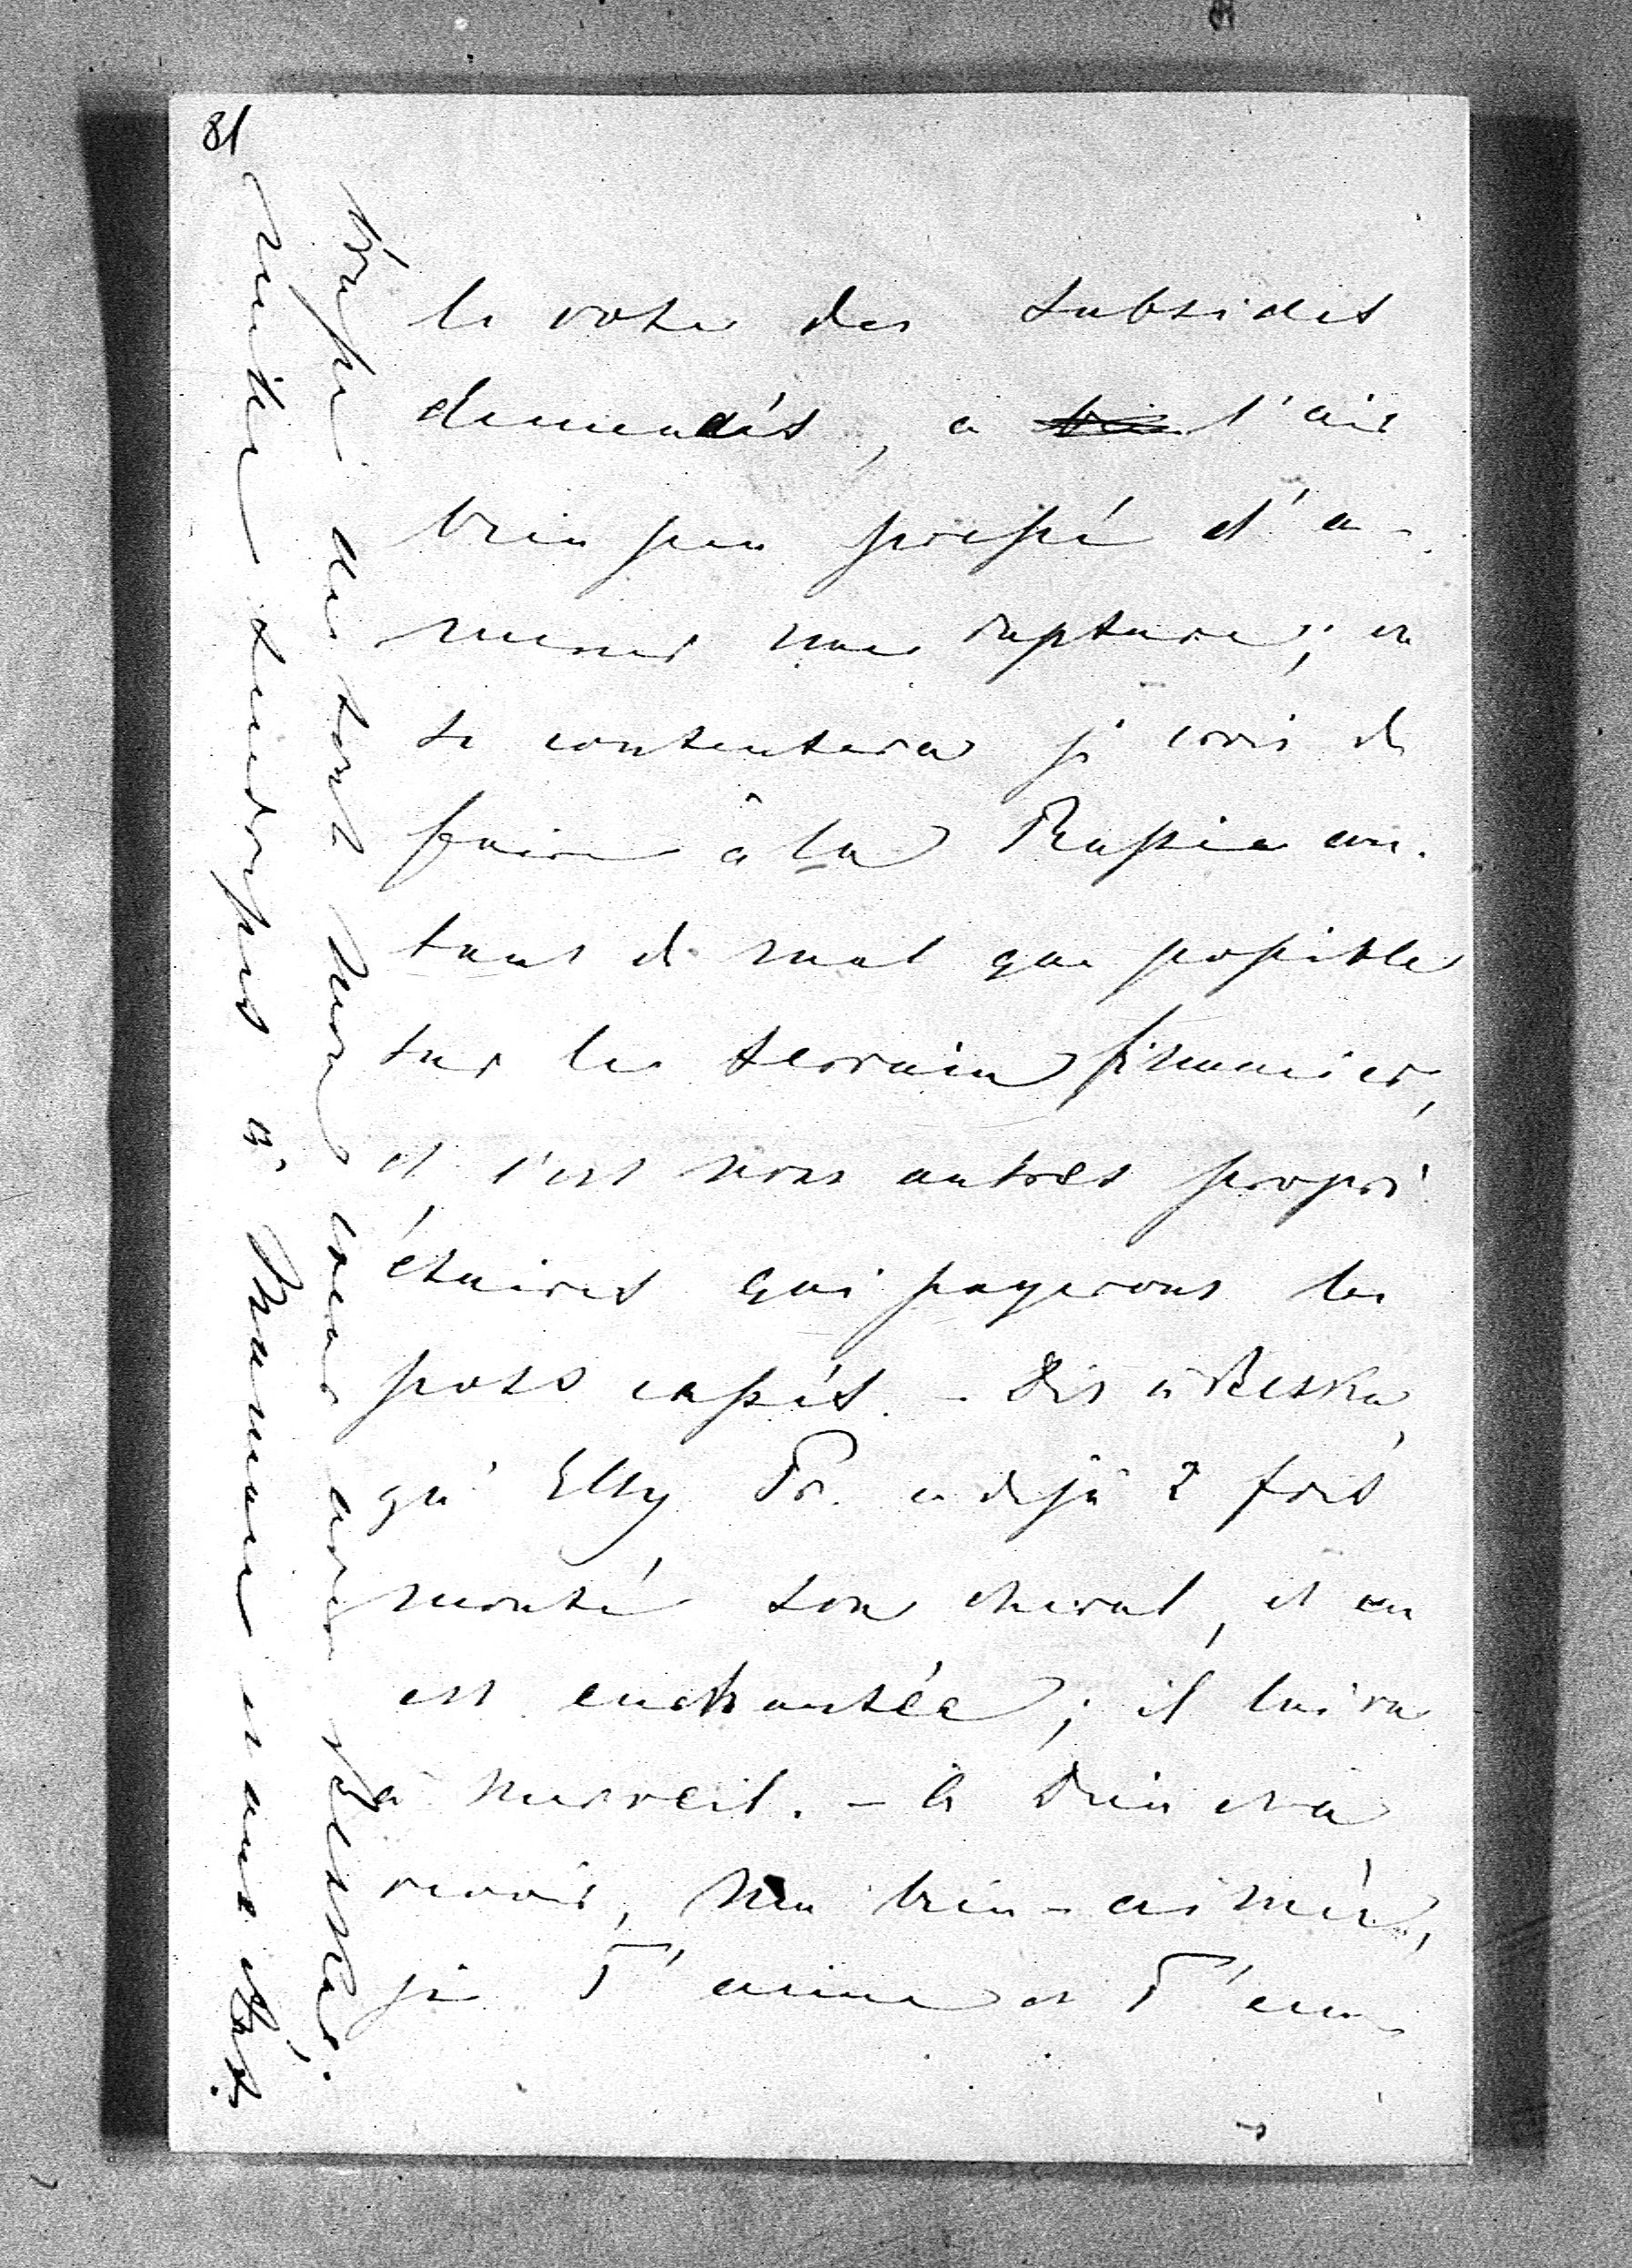 81
le vote des subsides
demandés, a l'air
bien peu pressé d'a-
mener une rupture; on
se contentera je crois de
faire à la Russie au-
tant de mal que possible
sur le terrain financier,
et c'est nous autres propri-
étaires qui payerons les
pots cassés. - Dis à Beska
qu'Elly Tr. a déjà 2 fois
monté son cheval, et en
est enchantée; il lui va
à merveil. - à Dieu et à
revoir, ma bien-aimée,
je T'aime et T'em-
brasse de tout mon cœur avec Beska.
Maman et